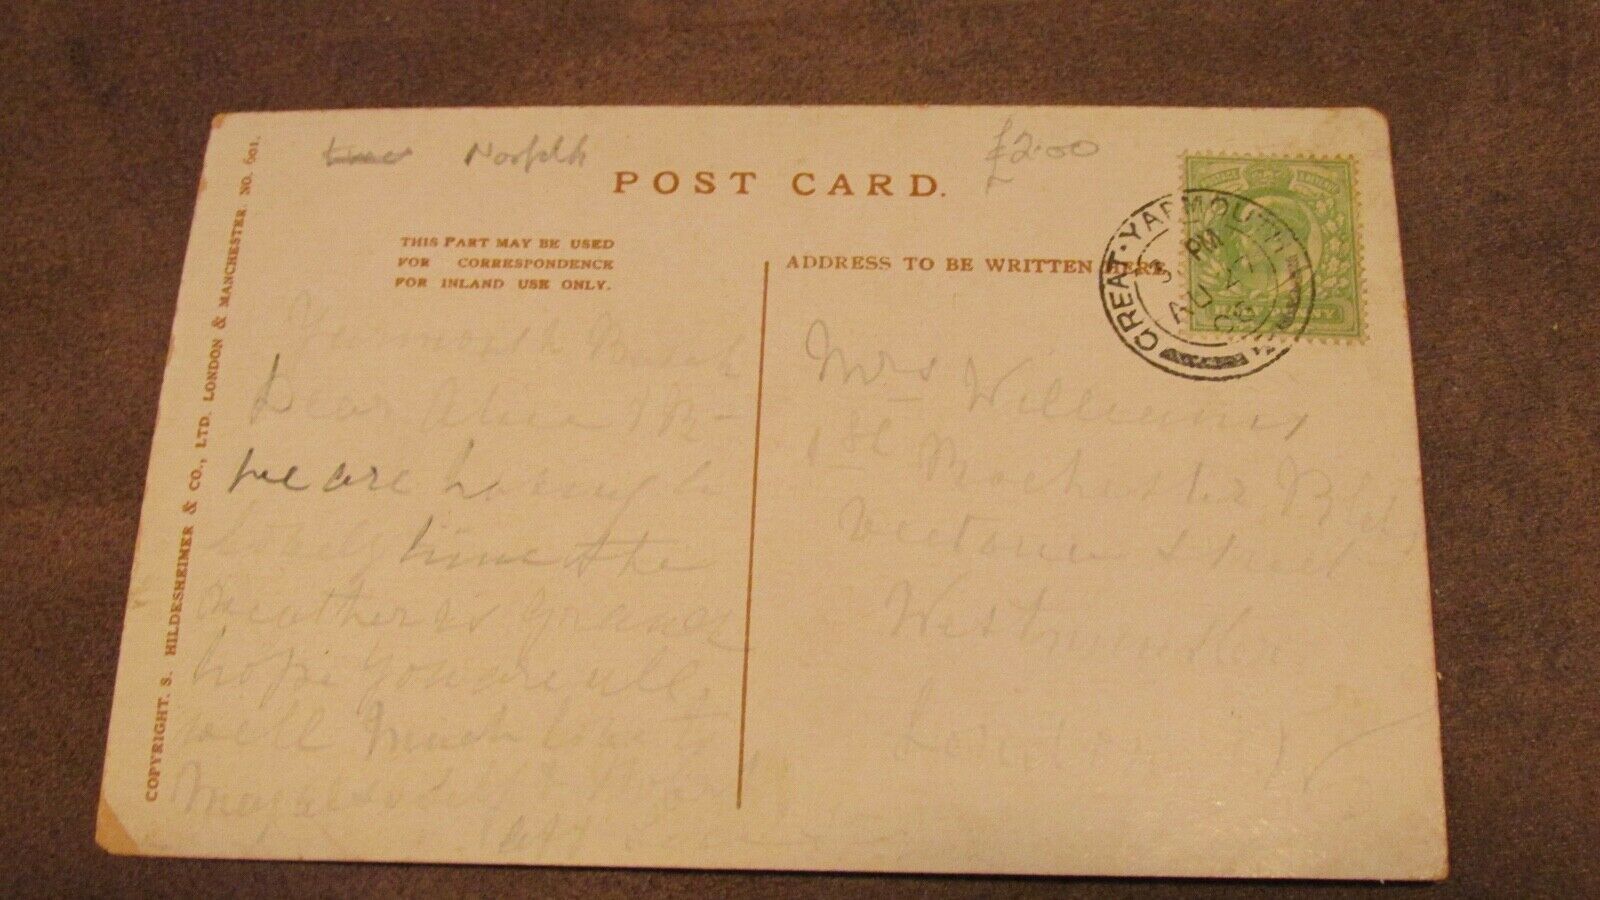 Norfolk
£2.00
POST CARD.
THIS PART MAY BE USED
FOR CORRESPONDENCE
FOR INLAND USE ONLY.
ADDRESS TO BE WRITTEN HERE
GREAT·YARMOUTH
PM
AU
HALFPENNY
Yarmouth Beach
Dear
we are having a
lovely time the
Weather is Grand
hope you are all
well Much love to
Mrs Williams
Rochester
Street
Westminster
London
COPYRIGHT. S. HILDESHEIMER & CO., LTD. LONDON & MANCHESTER. NO. 601.